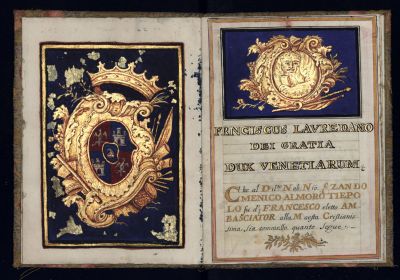 FRNCISCUS LAVREDANO
DEI GRATIA
DUX VENETIARUM,
Che al D N. N. ZAN DO
MENICO ALMORÒ TIEPO
LO fu d. FRANCESCO eletto AM
BASCIATOR alla Maestà Cristianis
sima, sia commesso quanto segue: